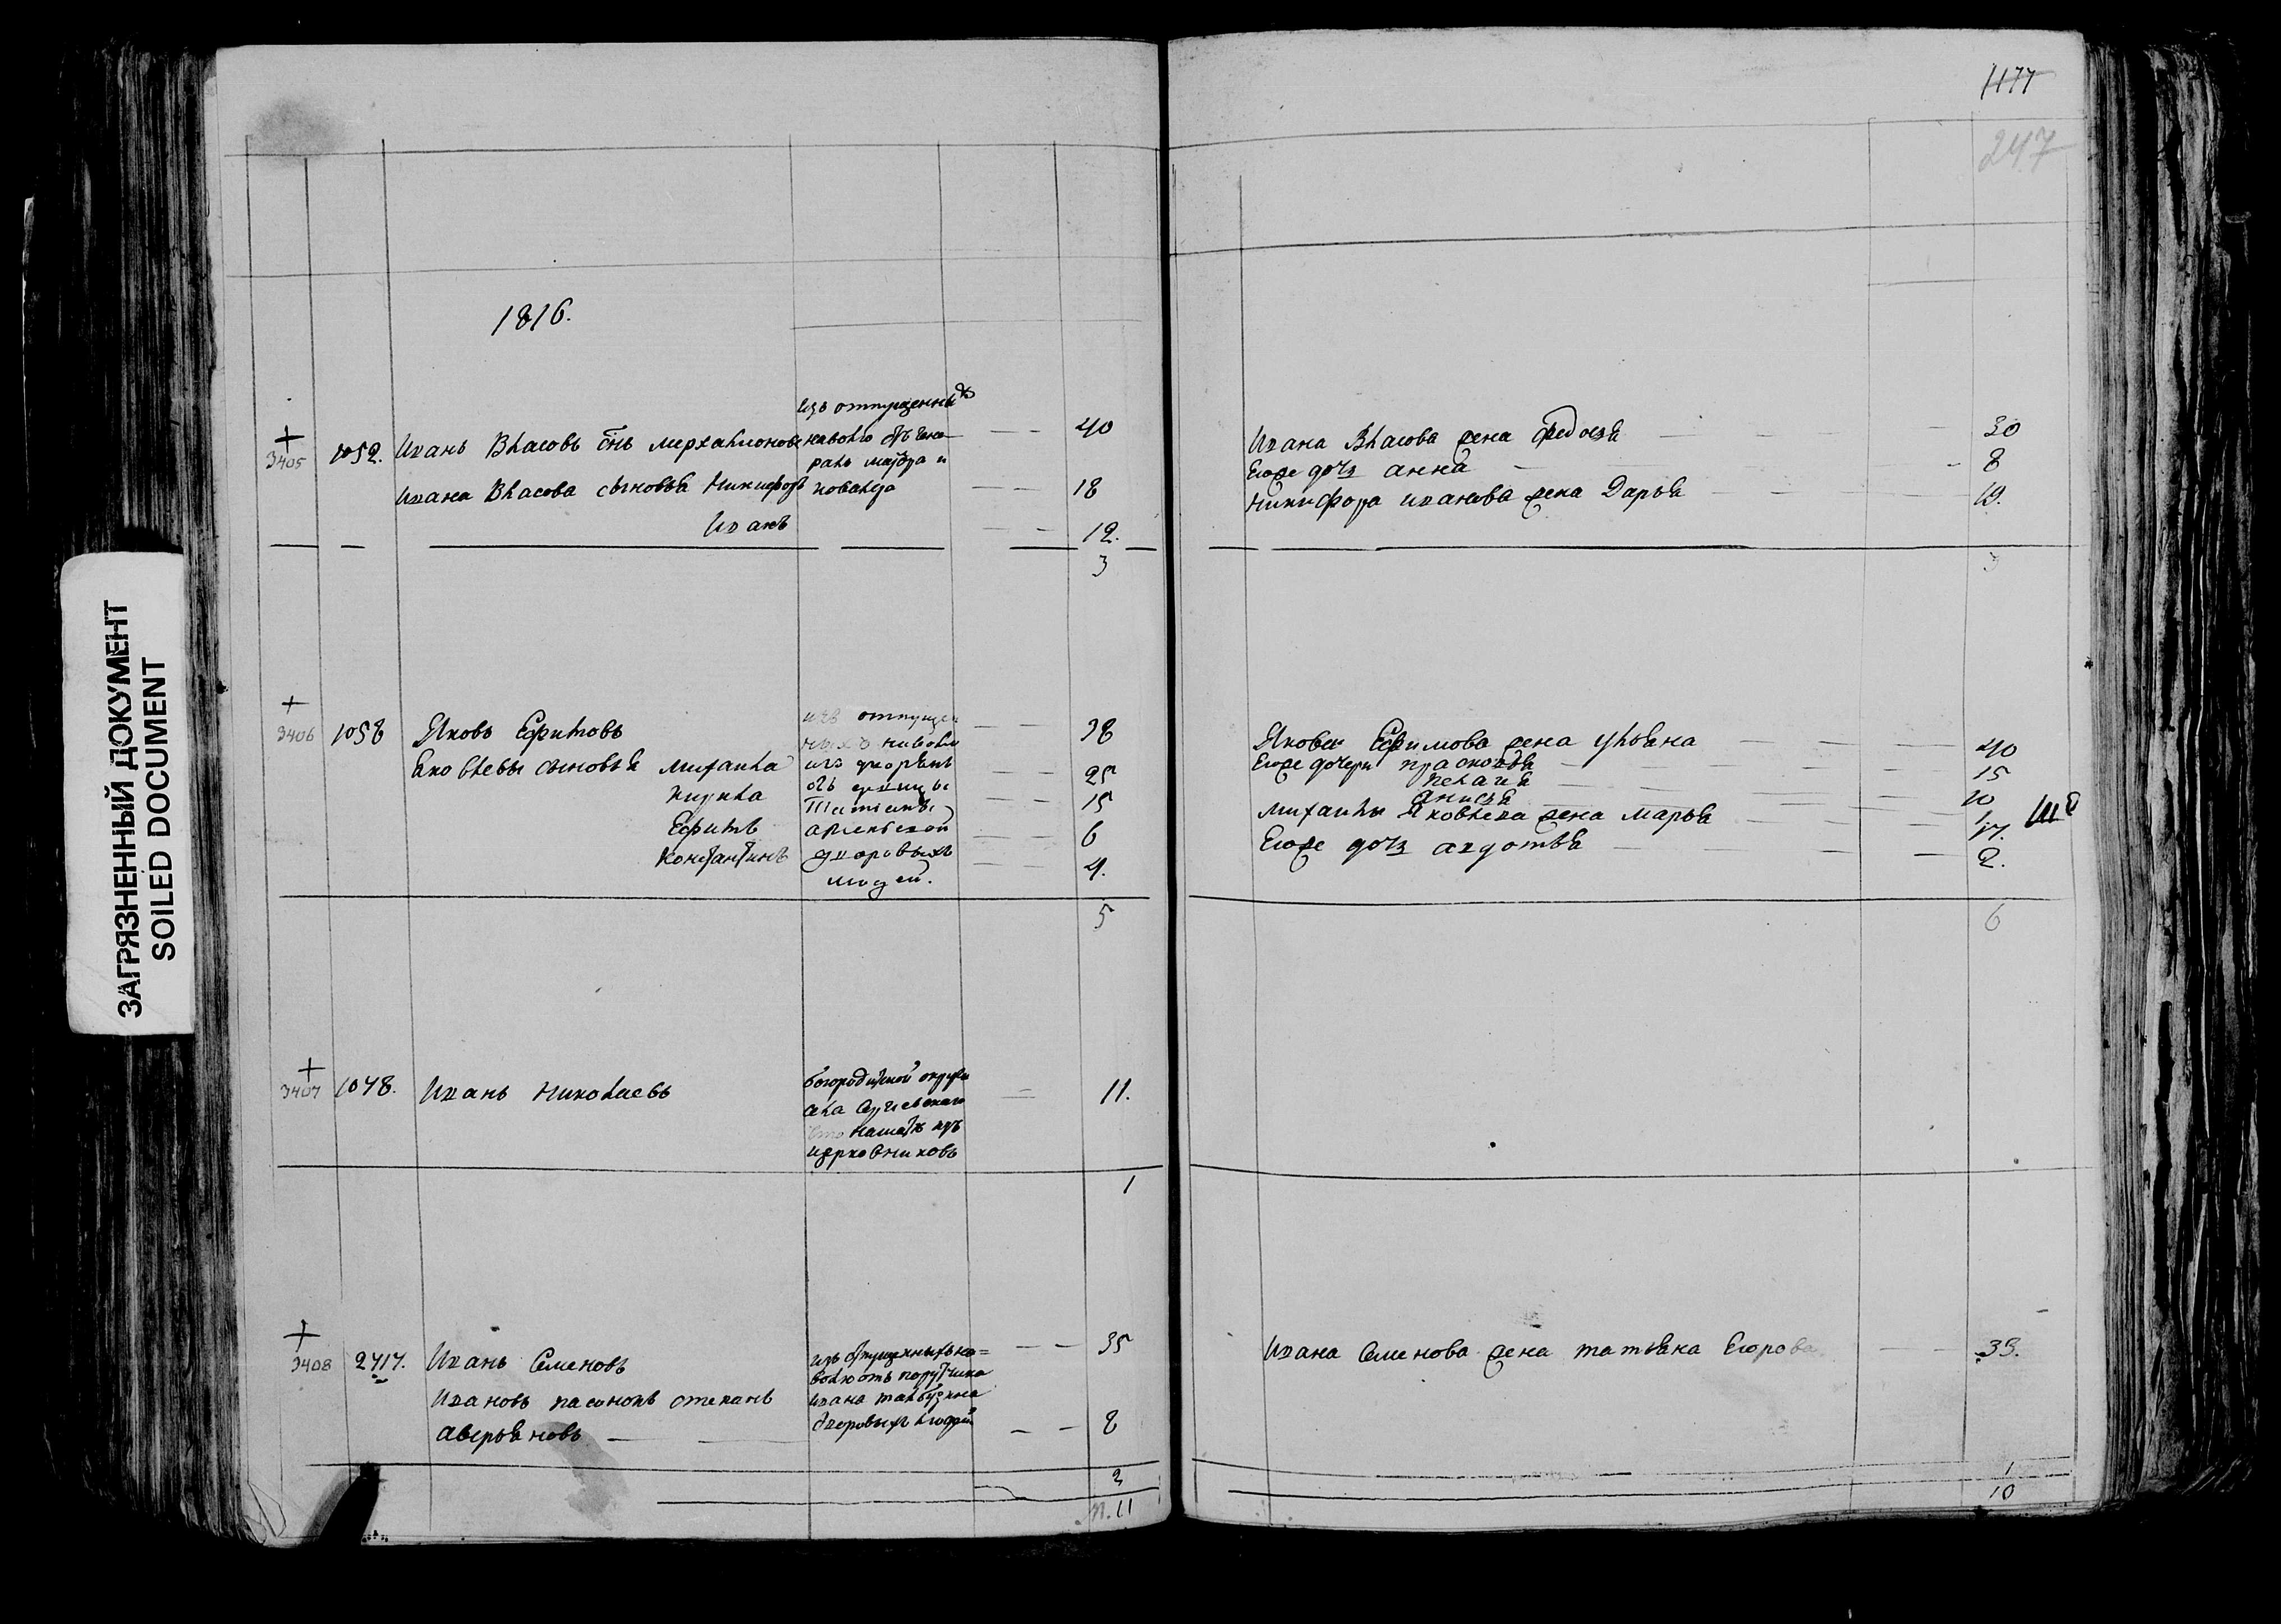 ЗАГРЯЗНЕННЫЙ ДОКУМЕНТ
SOILED DOCUMENT
1816.
изъ отпущенныхъ
3405 1052. Иванъ Власовъ снъ 40
ралъ маіора
Ивана Власова сыновья Никифоръ 18
Иванъ 12.
3
3406 1058 Яковъ Ефимовъ изъ отпущен 38
ныхъ наволю
Яковлевы сыновья михаила 25
кирила 15
Ефимъ 6
Константинъ дворовыхъ 4.
людей.
5
3407 1078. Иванъ Николаевъ богородицкой округи 11.
села Сергиевскаго
церковниковъ
1
3408 2717. Иванъ Семеновъ изъ отпущенныхъ на= 35
волю отъ порутчика
Ивановъ пасынокъ степанъ ивана
аверьяновъ дворовыхъ людей 8
2
м. 11
1177
247
Ивана Власова жена федосья 30
Егоже дочь анна 8
Никифора иванова жена Дарья 19.
3
Якова Ефимова жена ульяна 40
Егоже дочери прасковья 15
пелагия 10
анисья 1
михаилы Яковлева жена марья 17.
Егоже дочь авдотья 2.
6
Ивана Семенова жена татьяна Егорова 33.
1
10